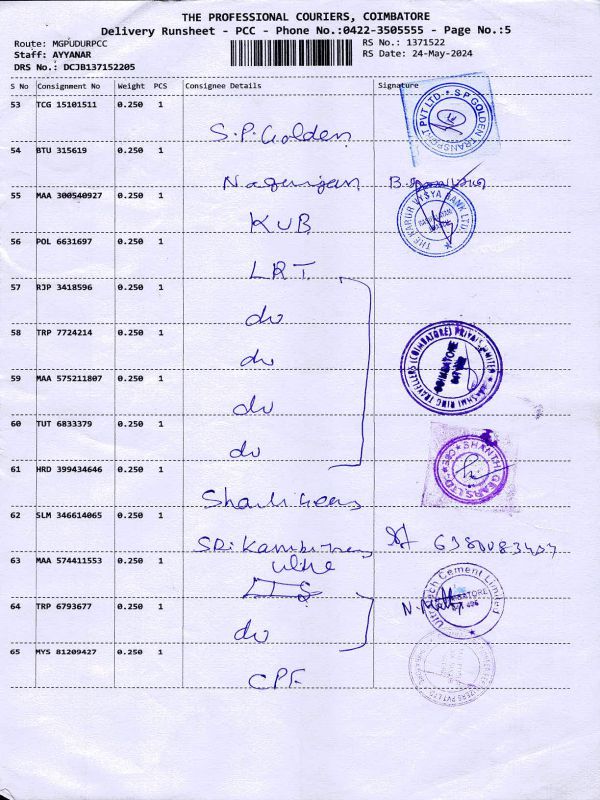 THE PROFESSIONAL COURIERS, COIMBATORE
Delivery Runsheet - PCC - Phone No.:0422-3505555 - Page No.:5
Route: MGPUDURPCC
Staff: AYYANAR
DRS No.: DCJB137152205
RS No.: 1371522
RS Date: 24-May-2024
S No Consignment No Weight PCS Consignee Details Signature
53 TCG 15101511 0.250 1 S.P. Golden
S P GOLDEN TRANSPORT PVT LTD.
54 BTU 315619 0.250 1 Nagarajan B.
55 MAA 300540927 0.250 1 KVB
THE KARUR VYSYA BANK LTD.
56 POL 6631697 0.250 1 LRT
57 RJP 3418596 0.250 1 do
58 TRP 7724214 0.250 1 do
LAKSHMI RING TRAVELLERS (COIMBATORE) PRIVATE LIMITED
COIMBATORE
59 MAA 575211807 0.250 1 do
60 TUT 6833379 0.250 1 do
61 HRD 399434646 0.250 1 Shanthi Gears
SHANTHI GEARS LTD CBE
62 SLM 346614065 0.250 1 Sri
63 MAA 574411553 0.250 1 ultra
UltraTech Cement Limited
64 TRP 6793677 0.250 1 do
65 MYS 81209427 0.250 1 CPF